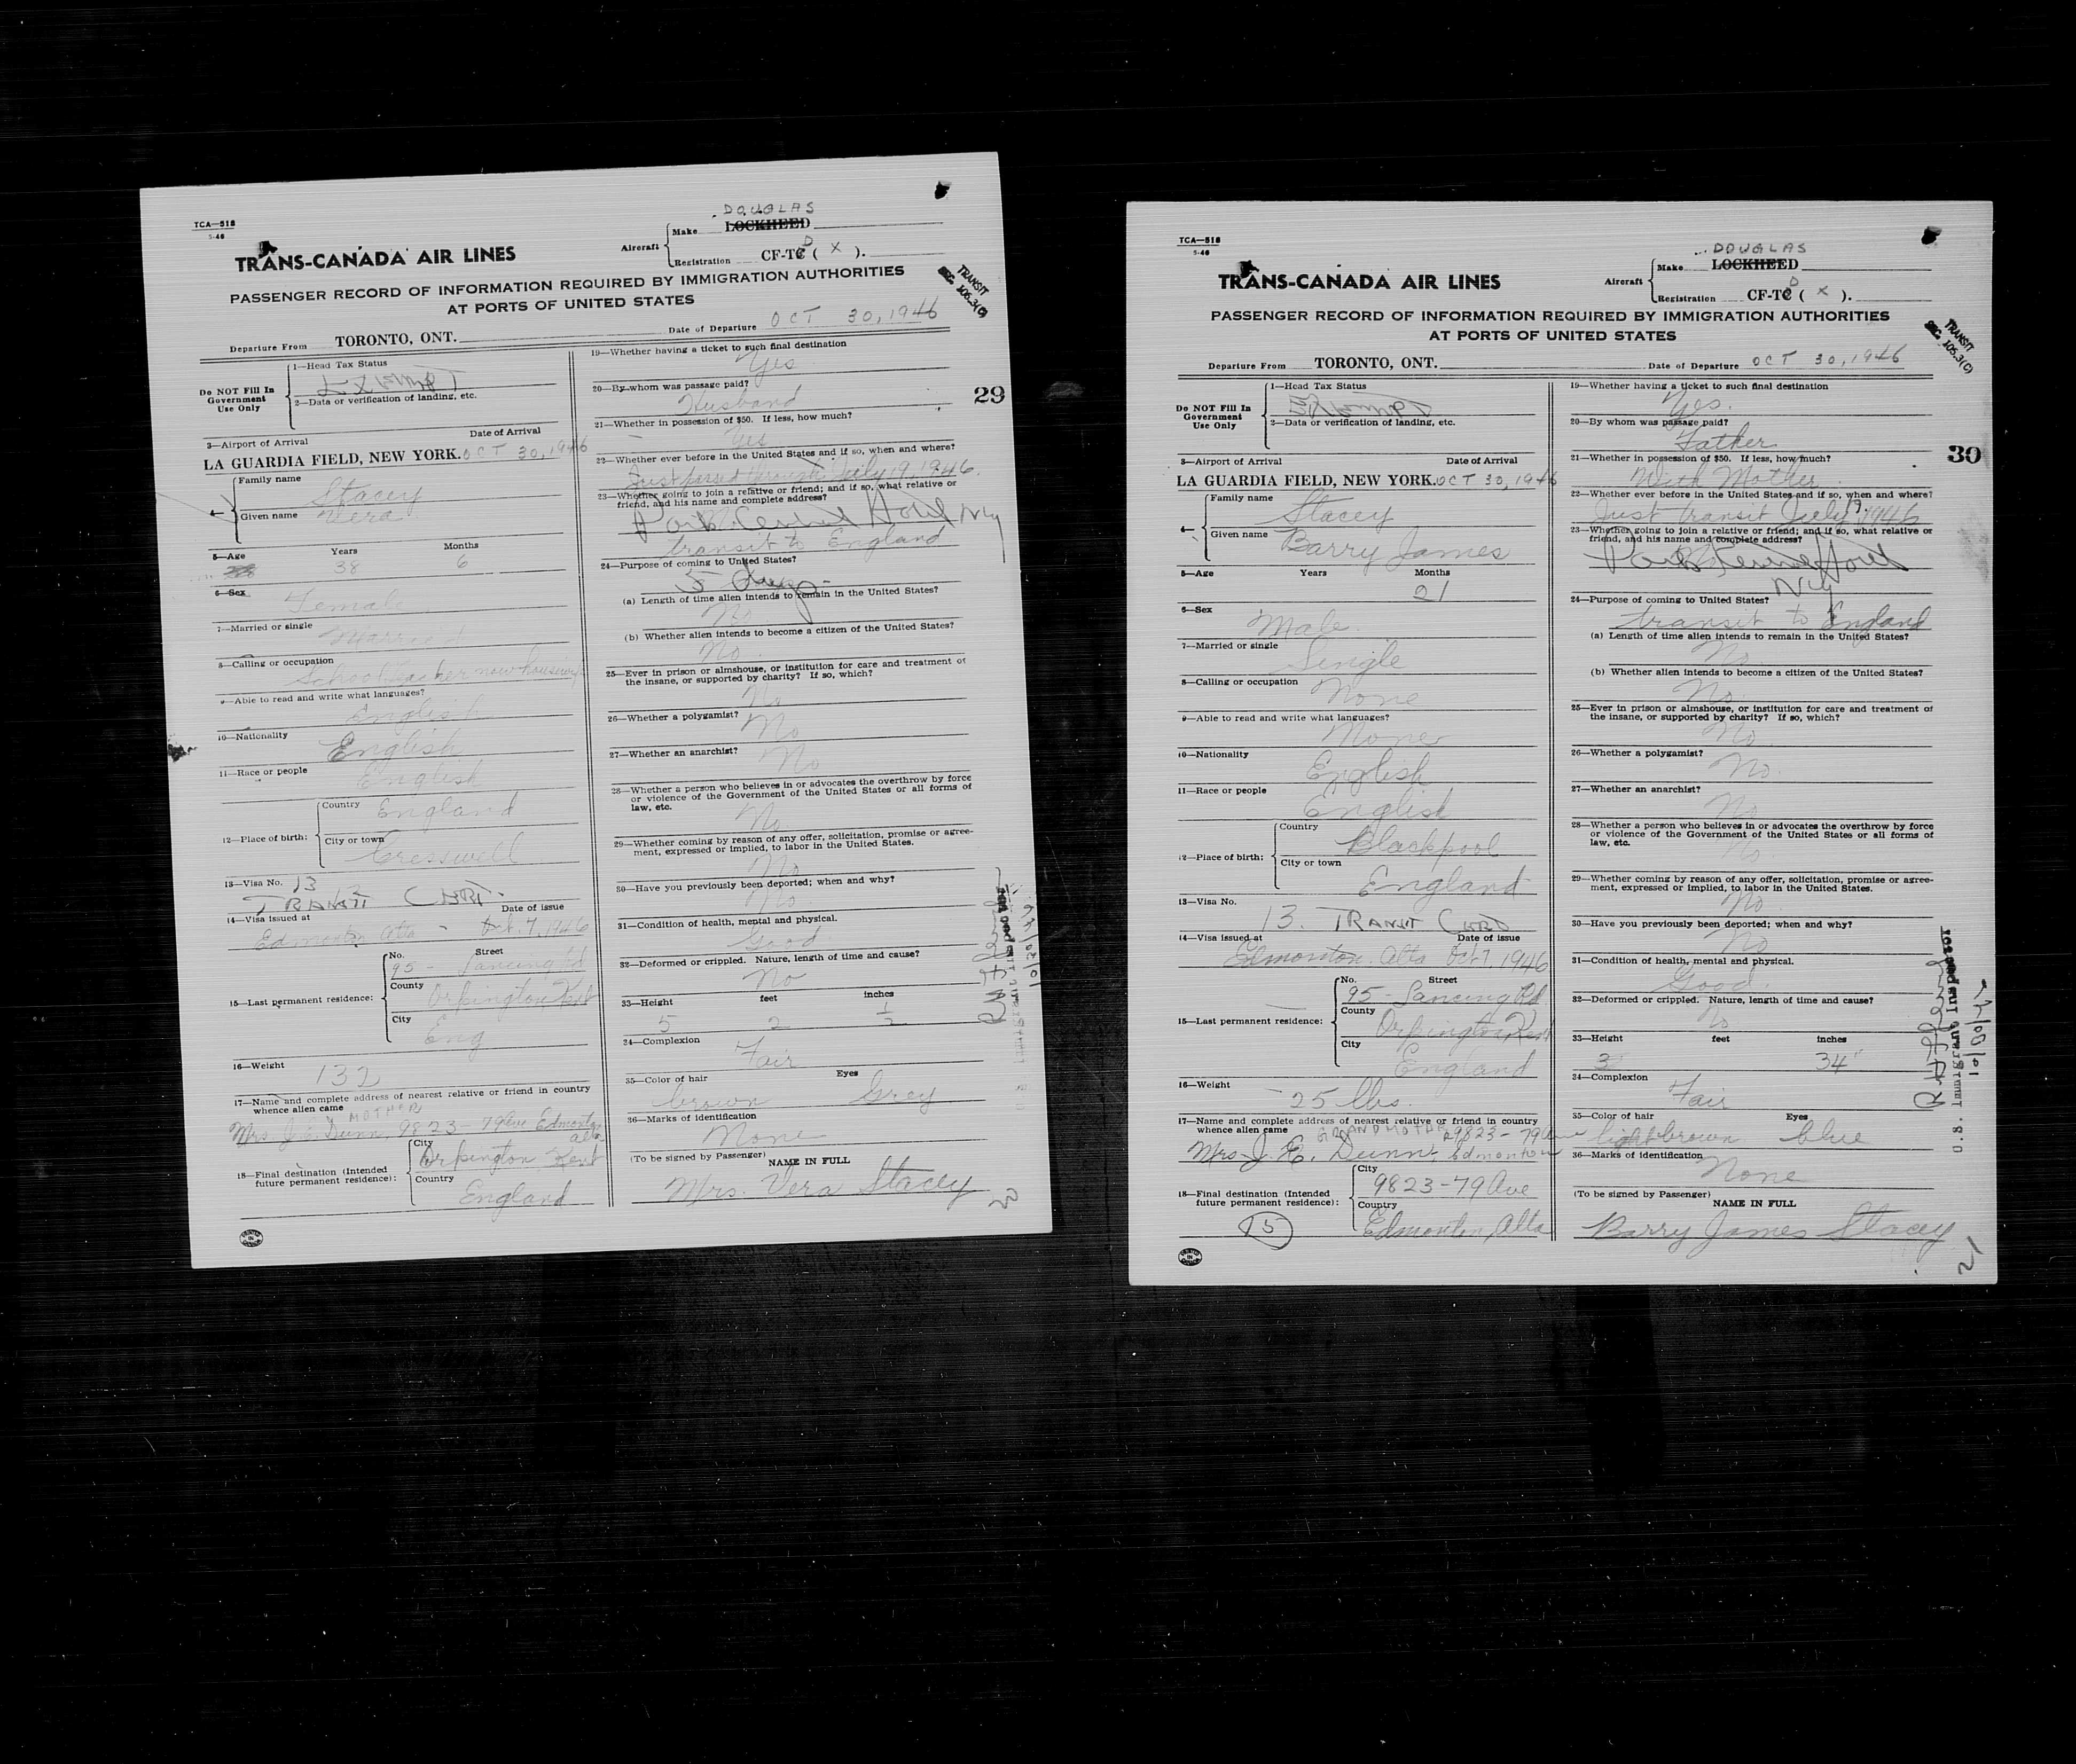 TCA—518
5-46
DOUGLAS
Aircraft Make LOCKHEED
Registration CF-TC D ( X ).
TRANS-CANADA AIR LINES
PASSENGER RECORD OF INFORMATION REQUIRED BY IMMIGRATION AUTHORITIES
AT PORTS OF UNITED STATES
TRANSIT
SEC. 105.3(C)
Departure From TORONTO, ONT. Date of Departure OCT 30, 1946
29
Do NOT Fill In
Government
Use Only
1—Head Tax Status
EXEMPT
2—Data or verification of landing, etc.
3—Airport of Arrival Date of Arrival
LA GUARDIA FIELD, NEW YORK. OCT 30, 1946
4— Family name Stacey
Given name Vera
5—Age Years Months
38 6
6—Sex
Female
7—Married or single
Married
8—Calling or occupation
School Teacher now housewife
9—Able to read and write what languages?
English
10—Nationality
English
11—Race or people
English
12—Place of birth: Country England
City or town Cresswell
13—Visa No. 13
TRANSIT CERT.
14—Visa issued at Date of issue
Edmonton Alta - Oct. 7, 1946
15—Last permanent residence: No. Street
95 - Lancing Rd
County
Orpington Kent
City
Eng
16—Weight
132
17—Name and complete address of nearest relative or friend in country
whence alien came
MOTHER
Mrs J. E. Dunn, 9823-79 Ave Edmonton
Alta
18—Final destination (Intended
future permanent residence):
City
Orpington Kent
Country
England
19—Whether having a ticket to such final destination
Yes
20—By whom was passage paid?
Husband
21—Whether in possession of $50. If less, how much?
Yes
22—Whether ever before in the United States and if so, when and where?
Just passed through July 19, 1946.
23—Whether going to join a relative or friend; and if so, what relative or
friend, and his name and complete address?
Park Central Hotel NY
transit to England
24—Purpose of coming to United States?
5 days
(a) Length of time alien intends to remain in the United States?
No
(b) Whether alien intends to become a citizen of the United States?
No
25—Ever in prison or almshouse, or institution for care and treatment of
the insane, or supported by charity? If so, which?
No
26—Whether a polygamist?
No
27—Whether an anarchist?
No
28—Whether a person who believes in or advocates the overthrow by force
or violence of the Government of the United States or all forms of
law, etc.
No
29—Whether coming by reason of any offer, solicitation, promise or agree-
ment, expressed or implied, to labor in the United States.
No
30—Have you previously been deported; when and why?
No
31—Condition of health, mental and physical.
Good
32—Deformed or crippled. Nature, length of time and cause?
No
33—Height feet inches
5 2 1/2
34—Complexion
Fair
35—Color of hair Eyes
brown Grey
36—Marks of identification
None
(To be signed by Passenger) NAME IN FULL
Mrs. Vera Stacey
10/30/46
TCA—518
5-46
DOUGLAS
Aircraft Make LOCKHEED
Registration CF-TC D ( X ).
TRANS-CANADA AIR LINES
PASSENGER RECORD OF INFORMATION REQUIRED BY IMMIGRATION AUTHORITIES
AT PORTS OF UNITED STATES
TRANSIT
SEC. 105.3(C)
Departure From TORONTO, ONT. Date of Departure OCT 30, 1946
30
Do NOT Fill In
Government
Use Only
1—Head Tax Status
EXEMPT
2—Data or verification of landing, etc.
3—Airport of Arrival Date of Arrival
LA GUARDIA FIELD, NEW YORK. OCT 30, 1946
4— Family name Stacey
Given name Barry James
5—Age Years Months
21
6—Sex
Male
7—Married or single
Single
8—Calling or occupation
None
9—Able to read and write what languages?
None
10—Nationality
English
11—Race or people
English
12—Place of birth: Country
Blackpool
City or town
England
13—Visa No.
13. TRANSIT CERT
14—Visa issued at Date of issue
Edmonton. Alta Oct 7, 1946
15—Last permanent residence: No. Street
95 - Lancing Rd
County
Orpington Kent
City
England
16—Weight
25 lbs.
17—Name and complete address of nearest relative or friend in country
whence alien came
GRANDMOTHER 9823-79 Ave
Mrs. J. E. Dunn, Edmonton
18—Final destination (Intended
future permanent residence):
City
9823-79 Ave
Country
Edmonton, Alta
15
19—Whether having a ticket to such final destination
Yes.
20—By whom was passage paid?
Father
21—Whether in possession of $50. If less, how much?
With Mother
22—Whether ever before in the United States and if so, when and where?
Just transit July 19, 1946
23—Whether going to join a relative or friend; and if so, what relative or
friend, and his name and complete address?
Park Central Hotel
NY
24—Purpose of coming to United States?
transit to England
(a) Length of time alien intends to remain in the United States?
No
(b) Whether alien intends to become a citizen of the United States?
No.
25—Ever in prison or almshouse, or institution for care and treatment of
the insane, or supported by charity? If so, which?
No
26—Whether a polygamist?
No.
27—Whether an anarchist?
No
28—Whether a person who believes in or advocates the overthrow by force
or violence of the Government of the United States or all forms of
law, etc.
No
29—Whether coming by reason of any offer, solicitation, promise or agree-
ment, expressed or implied, to labor in the United States.
No
30—Have you previously been deported; when and why?
No
31—Condition of health, mental and physical.
Good.
32—Deformed or crippled. Nature, length of time and cause?
No
33—Height feet inches
3 34"
34—Complexion
Fair
35—Color of hair Eyes
light brown blue
36—Marks of identification
None
(To be signed by Passenger) NAME IN FULL
Barry James Stacey
U.S. Immigrant Inspector
10/30/46
21